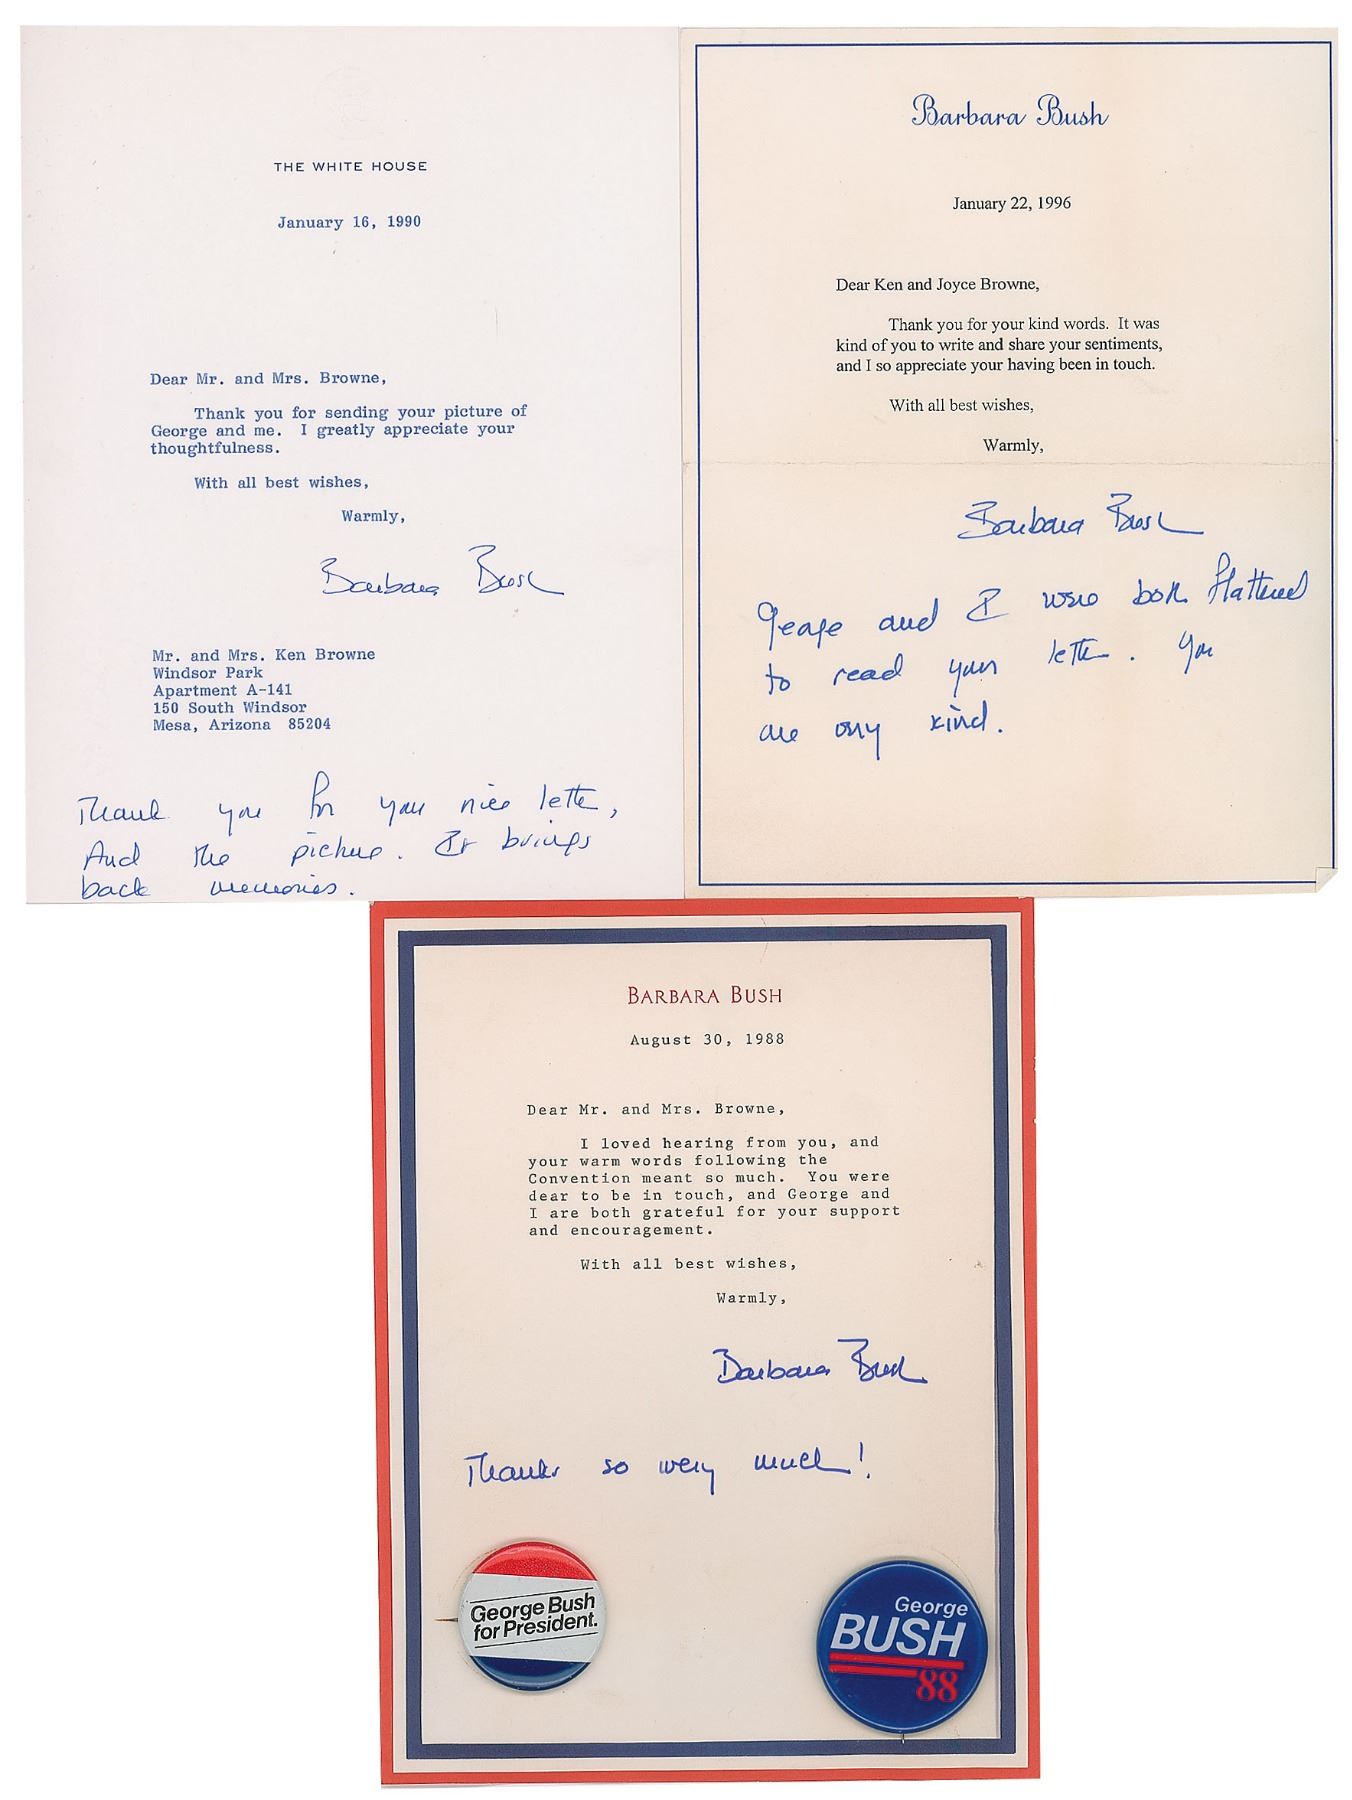 THE WHITE HOUSE
January 16, 1990
Dear Mr. and Mrs. Browne,
Thank you for sending your picture of
George and me.  I greatly appreciate your
thoughtfulness.
With all best wishes,
Warmly,
Barbara Bush
Mr. and Mrs. Ken Browne
Windsor Park
Apartment A-141
150 South Windsor
Mesa, Arizona  85204
Thank you for your nice letter,
And the picture. It brings
back memories.
Barbara Bush
January 22, 1996
Dear Ken and Joyce Browne,
Thank you for your kind words.  It was
kind of you to write and share your sentiments,
and I so appreciate your having been in touch.
With all best wishes,
Warmly,
Barbara Bush
George and I were both flattered
to read your letter. You
are very kind.
BARBARA BUSH
August 30, 1988
Dear Mr. and Mrs. Browne,
I loved hearing from you, and
your warm words following the
Convention meant so much.  You were
dear to be in touch, and George and
I are both grateful for your support
and encouragement.
With all best wishes,
Warmly,
Barbara Bush
Thanks so very much!
George Bush
for President.
George
BUSH
88